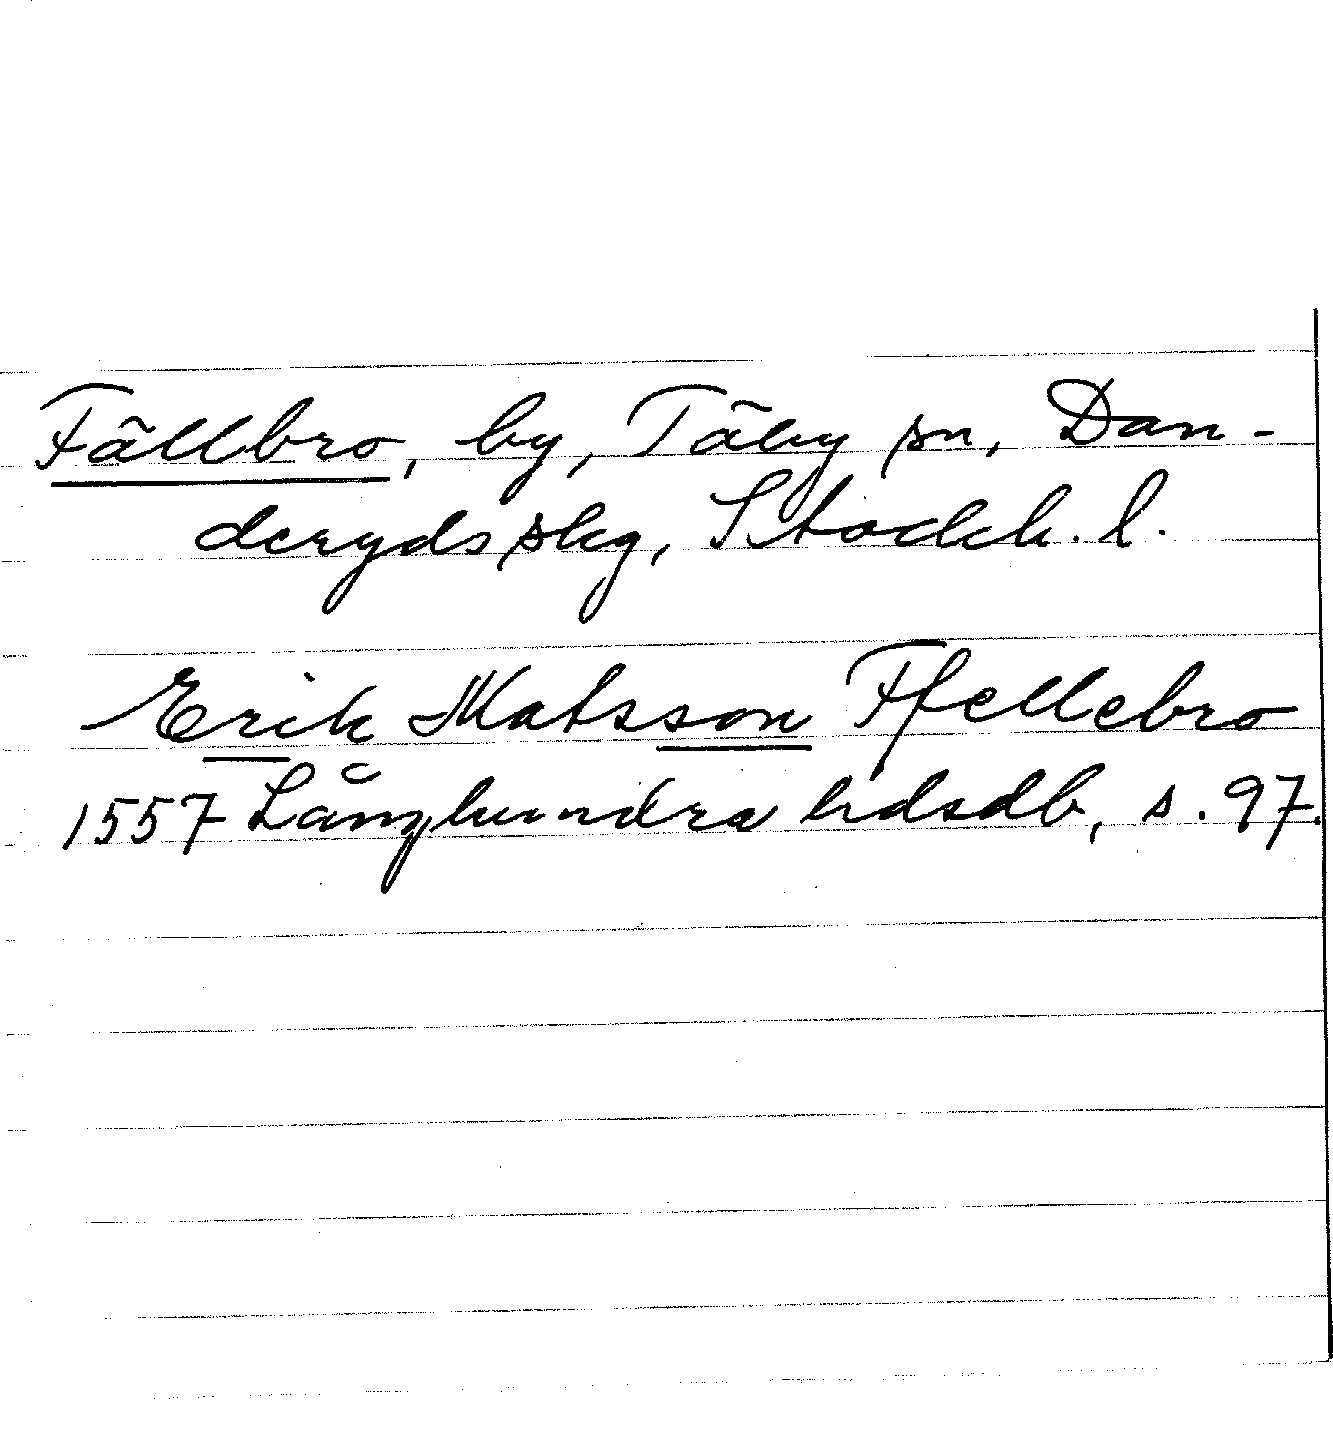 Fällbro, by, Täby sn, Dan-
deryds skg, Stockh. l.
Erik Matsson Ffellebro
1557 Långhundra hdsdb, s. 97.